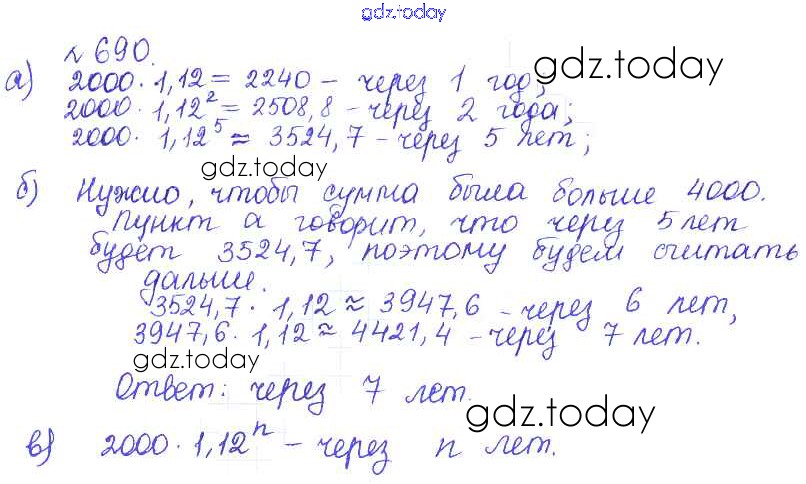 gdz.today
№ 690.
а) 2000 · 1,12 = 2240 – через 1 год;
2000 · 1,12² = 2508,8 – через 2 года;
2000 · 1,12⁵ ≈ 3524,7 – через 5 лет;
gdz.today
gdz.today
б) Нужно, чтобы сумма была больше 4000.
Пункт а говорит, что через 5 лет
будет 3524,7, поэтому будем считать
дальше.
3524,7 · 1,12 ≈ 3947,6 – через 6 лет,
3947,6 · 1,12 ≈ 4421,4 – через 7 лет.
gdz.today
Ответ: через 7 лет.
gdz.today
в) 2000 · 1,12ⁿ – через n лет.